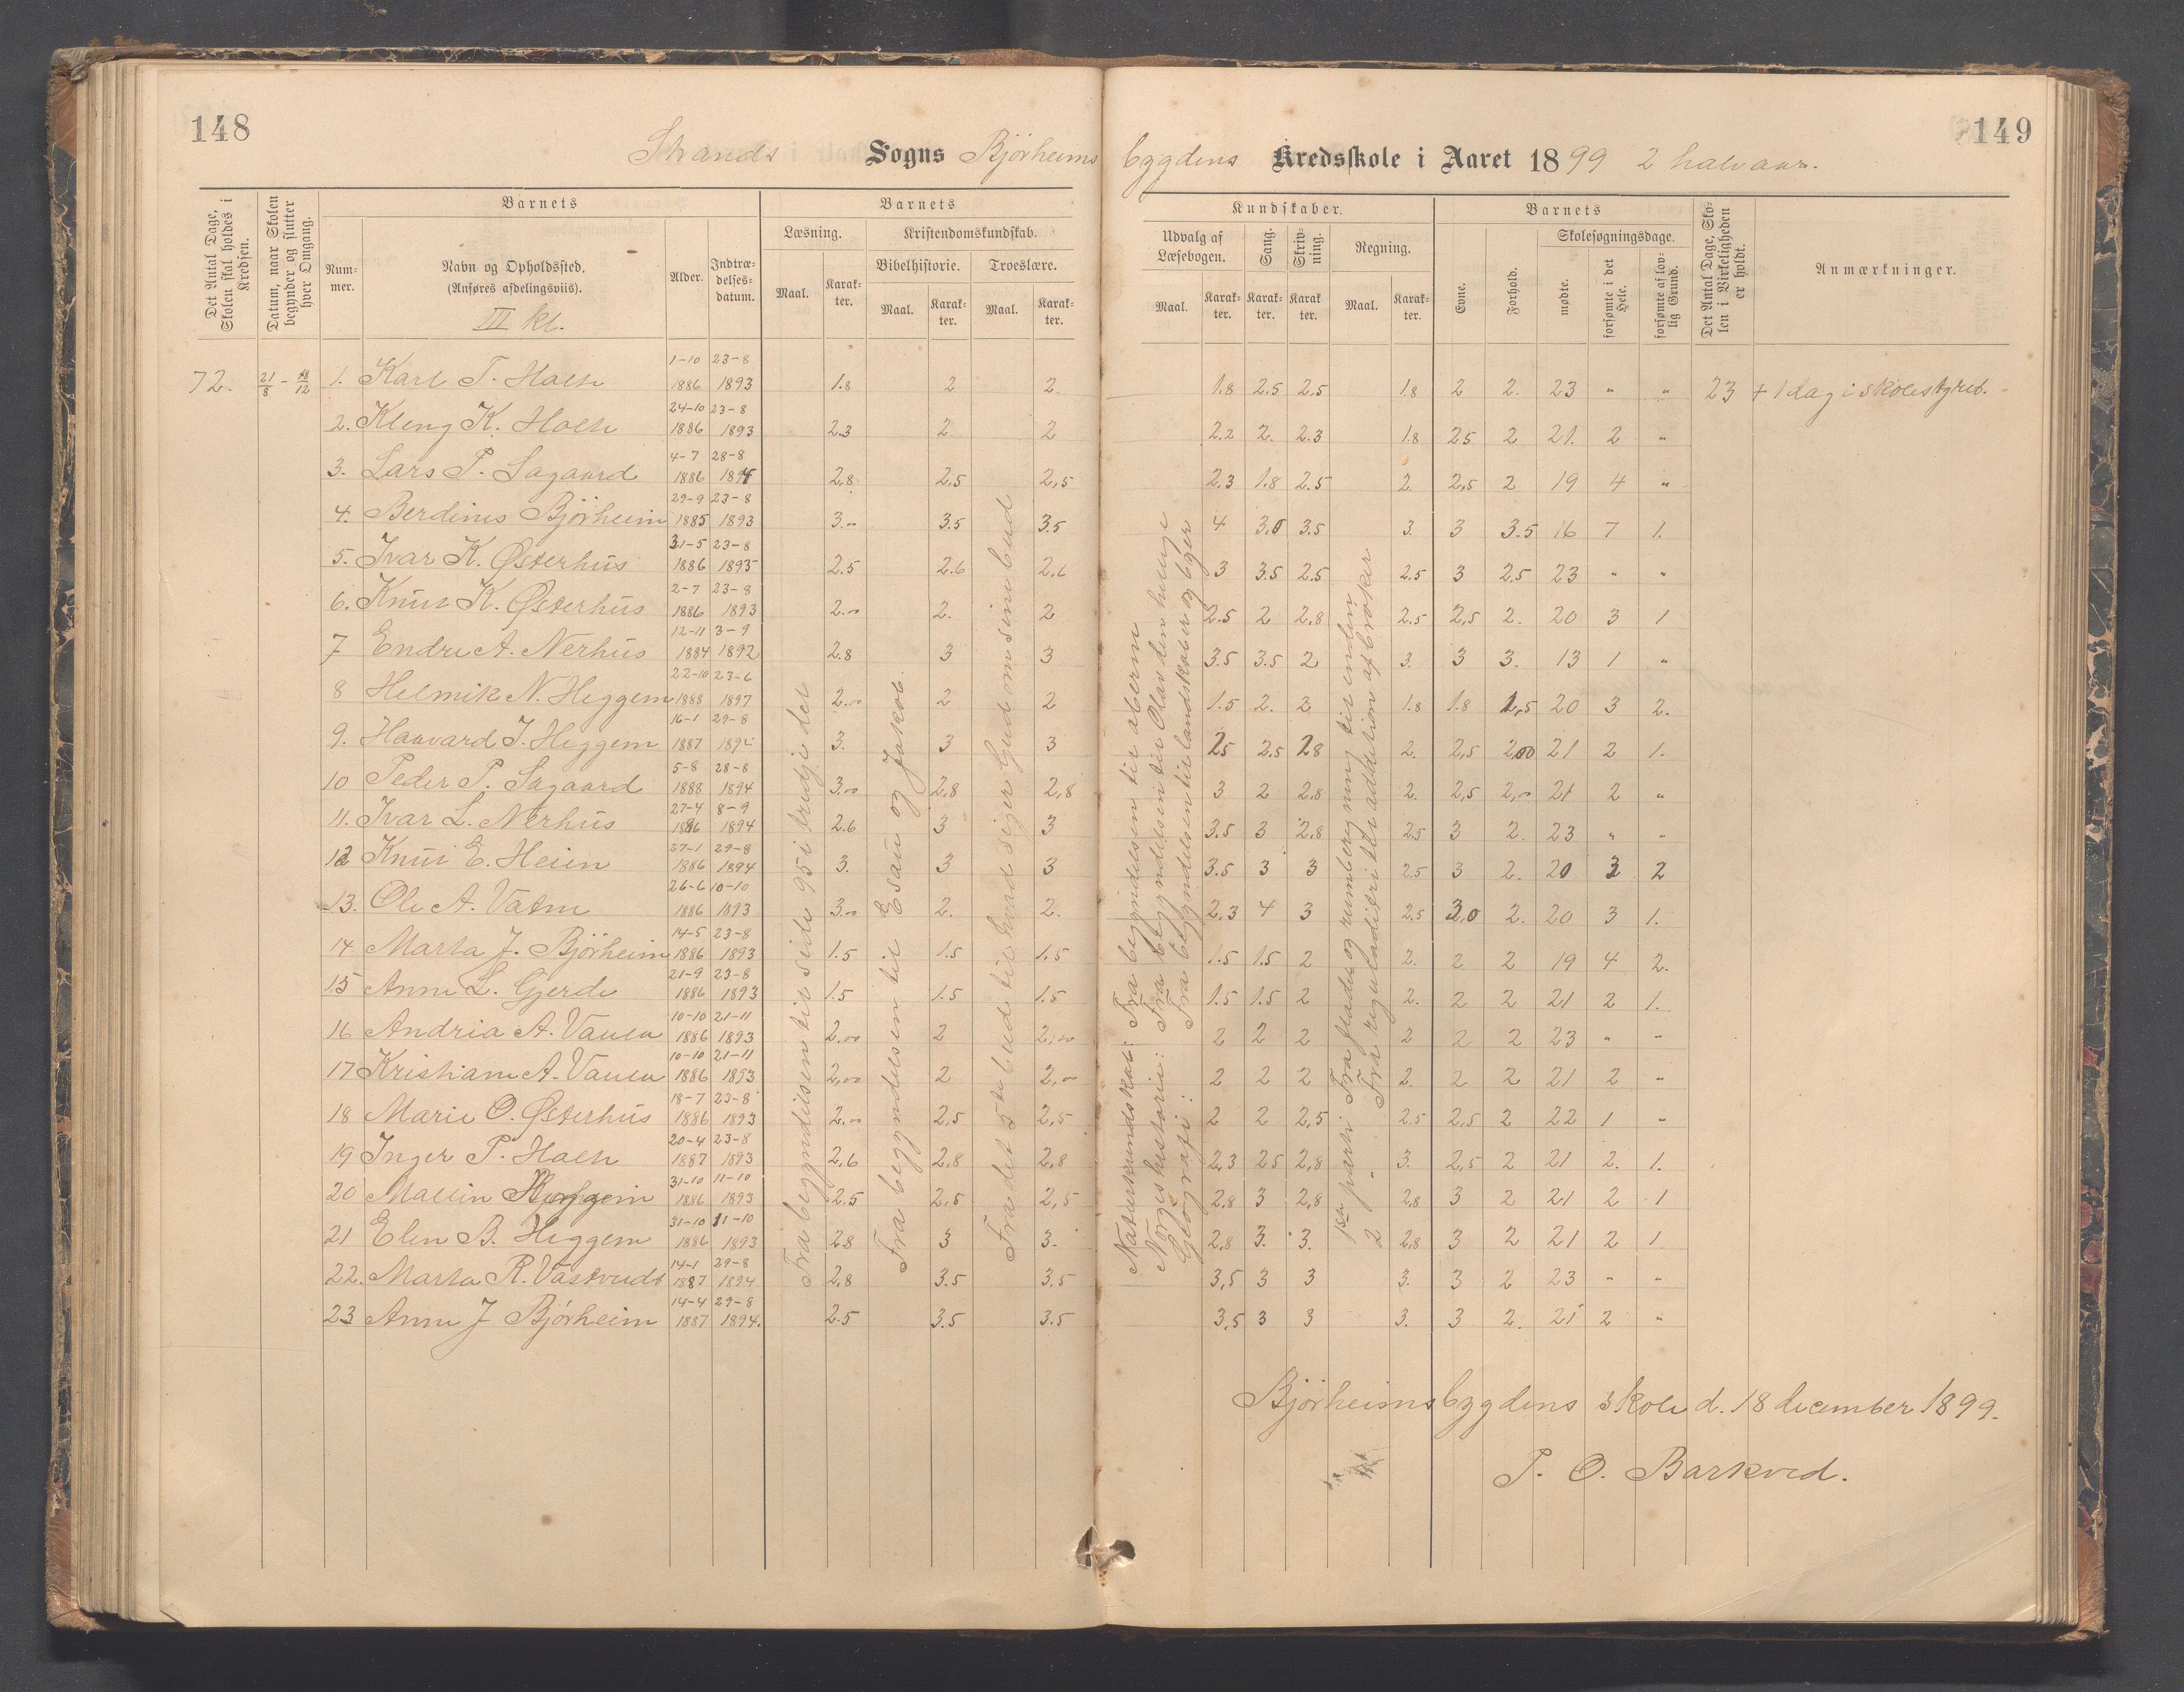 148
149
Strands Sogns Bjørheims bygdens Kredsskole i Aaret 1899 2 halvaar.
Det Antal Dage, Skolen skal holdes i Kredsen.
Datum, naar Skolen begynder og slutter hver Omgang.
Barnets
Num-mer.
Navn og Opholdssted.
(Anføres afdelingsviis).
III kl.
Alder.
Indtræ-delses-datum.
Barnets
Læsning.
Maal.
Karak-ter.
Kristendomskundskab.
Bibelhistorie.
Maal.
Karak-ter.
Troeslære.
Maal.
Karak-ter.
Kundskaber.
Udvalg af Læsebogen.
Maal.
Karak-ter.
Sang.
Karak-ter.
Skriv-ning.
Karak ter.
Regning.
Maal.
Karak-ter.
Barnets
Evne.
Forhold.
Skolesøgningsdage.
mødte.
forsømte i det Hele.
forsømte af lov-lig Grund.
Det Antal Dage, Sko-len i Virkeligheden er holdt.
Anmærkninger.
72. 21/8 - 18/12 1. Karl T. Holt 1-10 1886 23-8 1893 1.8 2 2. 1.8 2.5 2,5 1.8 2 2. 23 " " 23 + 1 dag i skolestyret.
2. Kleng K. Holt 24-10 1886 23-8 1893 2.3 2 2 2.2 2. 2.3 1.8 25 2 21. 2 "
3. Lars P. Sagaard 4-7 1886 28-8 1894 2,8 2.5 2,5 2.3 1.8 2.5 2. 2,5 2 19 4 "
4. Berdines Bjørheim 29-9 1885 23-8 1893 3.00 3.5 3.5 4 3.0 3.5 3. 3 3.5 16 7 1.
5. Ivar K. Østerhus 31-5 1886 23-8 1893 2.5 2.6 2,6 3 3.5 2.5 2.5 3 2.5 23 " "
6. Knut K. Østerhus 2-7 1886 23-8 1893 2.00 2. 2 2.5 2 2,8 2.5 2,5 2. 20 3 1
7 Endre A. Nerhus 12-11 1884 3-9 1892 2.8 3 3 3.5 3.5 2 3. 3 3. 13 1 "
8 Helmik N. Heggem 22-10 1888 23-6 1897 2.00 2 2 1.5 2. 2 1.8 1.8 1,5 20 3 2.
9. Haavard J. Heggem 16-1 1887 29-8 1894 3. 3 3 25 2.5 28 2. 2,5 200 21 2 1.
10 Peder P. Sagaard 5-8 1888 28-8 1894 3.00 2,8 2,8 3 2 2.8 2. 2,5 2,00 21 2 "
11. Ivar L. Nerhus 27-4 1886 8-9 1894 2.6 3 3 3.5 3 2,8 2.5 3 2. 23 " "
12 Knut E. Heien 27-1 1886 29-8 1894 3. 3 3 3.5 3 3 2.5 3 2. 20 3 2
13. Ole A. Vatne 26-6 1886 10-10 1893 3.00 2. 2. 2,3 4 3 2.5 3,0 2. 20 3 1.
14 Marta J. Bjørheim 14-5 1886 23-8 1893 1.5 1.5 1.5 1.5 1.5 2 2. 2 2 19 4 2.
15 Anne L. Gjerde 21-9 1886 23-8 1893 1.5 1.5 1.5 1.5 1.5 2 2. 2 2 21 2 1.
16 Andria A. 10-10 1886 21-11 1893 2.00 2 2,00 2 2 2 2 2 2 23 " "
17 Kristiane A. 10-10 1886 21-11 1893 2,00 2 2,00 2 2 2 2. 2 2 21 2 "
18 Marie O. Østerhus 18-7 1886 23-8 1893 2.00 2,5 2,5 2 2 2,5 2.5 2,5 2 22 1 "
19 Inger P. Holt 20-4 1887 23-8 1893 2,6 2,8 2,8 2,3 25 2,8 3. 2,5 2 21 2. 1.
20 Mallin Heggem 31-10 1886 11-10 1893 2.5 2,5 2,5 2,8 3 2,8 2,8 3 2 21 2 1
21 Elen B. Heggem 31-10 1886 11-10 1893 28 3 3. 2,8 3. 3. 2,8 3 2 21 2 1
22. Marta R. Vastveidt 14-1 1887 29-8 1894 2,8 3.5 3.5 3,5 3 3 3. 3 2 23 " "
23 Anne J Bjørheim 14-4 1887 29-8 1894. 2.5 3.5 3.5 3,5 3 3 3. 3 2. 21 2 "
Fra begyndelsen til side 95 i tredje del
Fra begyndelsen til Esau og Jakob.
Fra det 5te bud til Hvad siger Gud om sine bud
Naturkundskab: Fra begyndelsen til aberne
Norgeshistorie: Fra begyndelsen til Olav den hellige
Geografi: Fra begyndelsen til landskaber og byer
1ste parti Fra flade og rumberegning til enden
2 " Fra reguladetri til addition af brøker
Bjørheimsbygdens skole d. 18 december 1899.
P. O. Barkved.